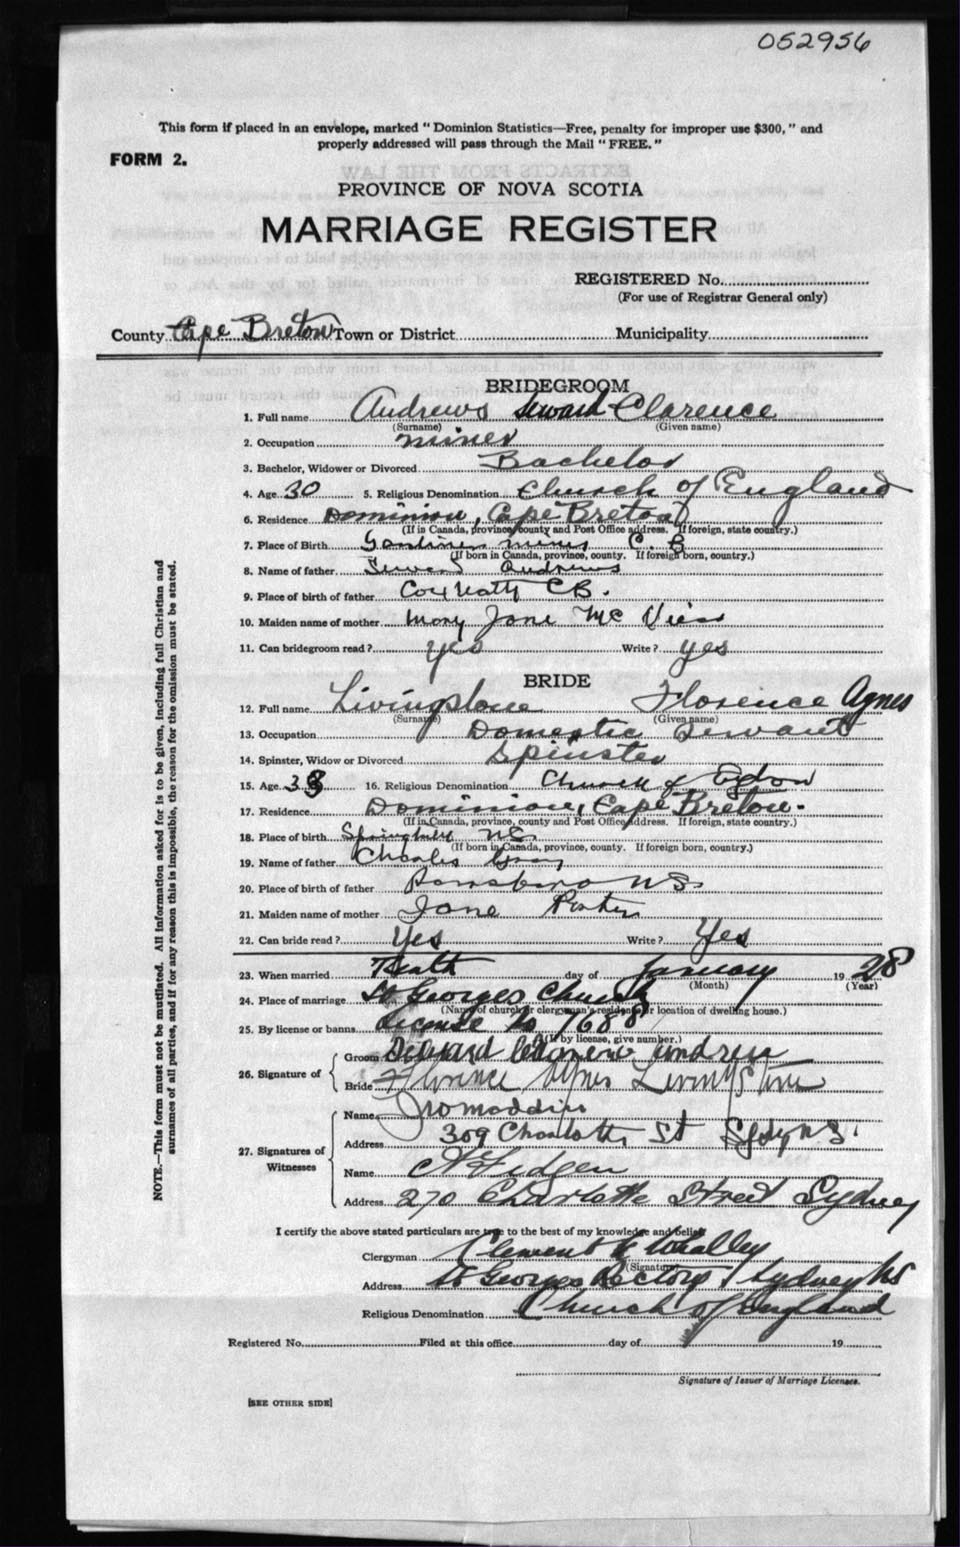 052956
This form if placed in an envelope, marked "Dominion Statistics—Free, penalty for improper use $300," and
properly addressed will pass through the Mail "FREE."
FORM 2.
PROVINCE OF NOVA SCOTIA
MARRIAGE REGISTER
REGISTERED No.
(For use of Registrar General only)
County Cape Breton Town or District Municipality
BRIDEGROOM
1. Full name Andrews Seward Clarence
(Surname) (Given name)
2. Occupation miner
3. Bachelor, Widower or Divorced Bachelor
4. Age 30 5. Religious Denomination Church of England
6. Residence Dominion, Cape Breton
(If in Canada, province, county and Post Office address. If foreign, state country.)
7. Place of Birth mines C. B
(If born in Canada, province, county. If foreign born, country.)
8. Name of father Seward Andrews
9. Place of birth of father Coxheath CB.
10. Maiden name of mother Mary Jane Mc
11. Can bridegroom read? yes Write? yes
BRIDE
12. Full name Livingstone Florence Agnes
(Surname) (Given name)
13. Occupation Domestic Servant
14. Spinster, Widow or Divorced Spinster
15. Age 38 16. Religious Denomination Church of
17. Residence Dominion, Cape Breton.
(If in Canada, province, county and Post Office address. If foreign, state country.)
18. Place of birth Springhill NS
(If born in Canada, province, county. If foreign born, country.)
19. Name of father Charles
20. Place of birth of father Parrsboro NS
21. Maiden name of mother Jane
22. Can bride read? Yes Write? Yes
23. When married Tenth day of January 1928
(Month) (Year)
24. Place of marriage St Georges Church
(Name of church or clergyman's residence or location of dwelling house.)
25. By license or banns License No 7688
(If by license, give number.)
26. Signature of
Groom Seward Clarence Andrews
Bride Florence Agnes Livingstone
27. Signatures of Witnesses
Name
Address 309 Charlotte St Sydy N.S.
Name
Address 270 Charlotte Street Sydney
I certify the above stated particulars are true to the best of my knowledge and belief.
Clergyman Clement Whalley
(Signature)
Address St Georges Rectory Sydney NS
Religious Denomination Church of England
Registered No. Filed at this office day of 19
Signature of Issuer of Marriage Licenses.
[SEE OTHER SIDE]
NOTE.—This form must not be mutilated. All information asked for is to be given, including full Christian and
surnames of all parties, and if for any reason this is impossible, the reason for the omission must be stated.